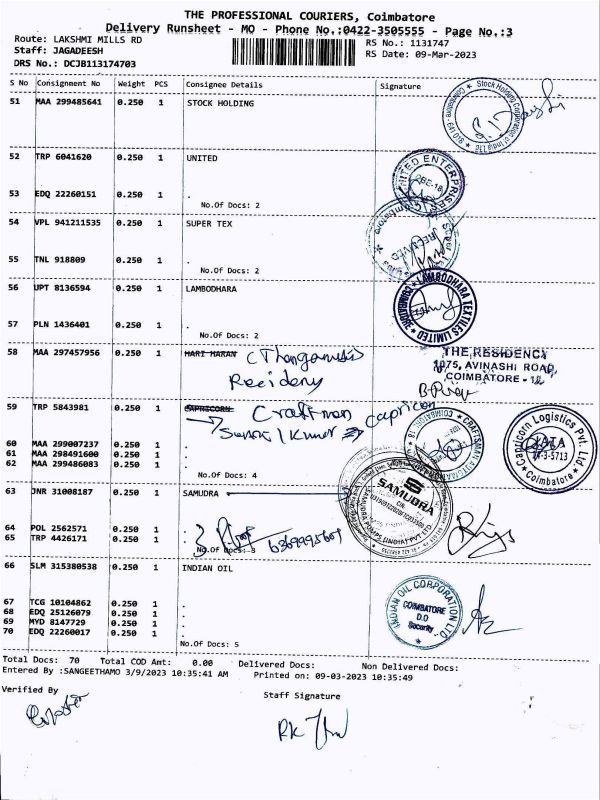 THE PROFESSIONAL COURIERS, Coimbatore
Delivery Runsheet - MO - Phone No.:0422-3505555 - Page No.:3
Route: LAKSHMI MILLS RD
RS No.: 1131747
Staff: JAGADEESH
RS Date: 09-Mar-2023
DRS No.: DCJB113174703
S No Consignment No Weight PCS Consignee Details Signature
51 MAA 299485641 0.250 1 STOCK HOLDING
52 TRP 6041620 0.250 1 UNITED
53 EDQ 22260151 0.250 1 .
No.Of Docs: 2
54 VPL 941211535 0.250 1 SUPER TEX
55 TNL 918809 0.250 1 .
No.Of Docs: 2
56 UPT 8136594 0.250 1 LAMBODHARA
LAMBODHARA TEXTILES LIMITED
57 PLN 1436401 0.250 1 .
No.Of Docs: 2
58 MAA 297457956 0.250 1 HARI HARAN
THE RESIDENCY
1075, AVINASHI ROAD,
COIMBATORE - 18
59 TRP 5843981 0.250 1 CAPRICORN Craftman capricon
Capricorn Logistics Pvt. Ltd.
Coimbatore
60 MAA 299007237 0.250 1 .
61 MAA 298491600 0.250 1 .
62 MAA 299486083 0.250 1 .
No.Of Docs: 4
63 JNR 31008187 0.250 1 SAMUDRA
SAMUDRA
64 POL 2562571 0.250 1 .
65 TRP 4426171 0.250 1 .
No.Of Docs: 3
66 SLM 315380538 0.250 1 INDIAN OIL
INDIAN OIL CORPORATION LTD.
COIMBATORE
D.O
Security
67 TCG 10104862 0.250 1 .
68 EDQ 25126079 0.250 1 .
69 MYD 8147729 0.250 1 .
70 EDQ 22260017 0.250 1 .
No.Of Docs: 5
Total Docs: 70 Total COD Amt: 0.00 Delivered Docs: Non Delivered Docs:
Entered By :SANGEETHAMO 3/9/2023 10:35:41 AM Printed on: 09-03-2023 10:35:49
Verified By
Staff Signature